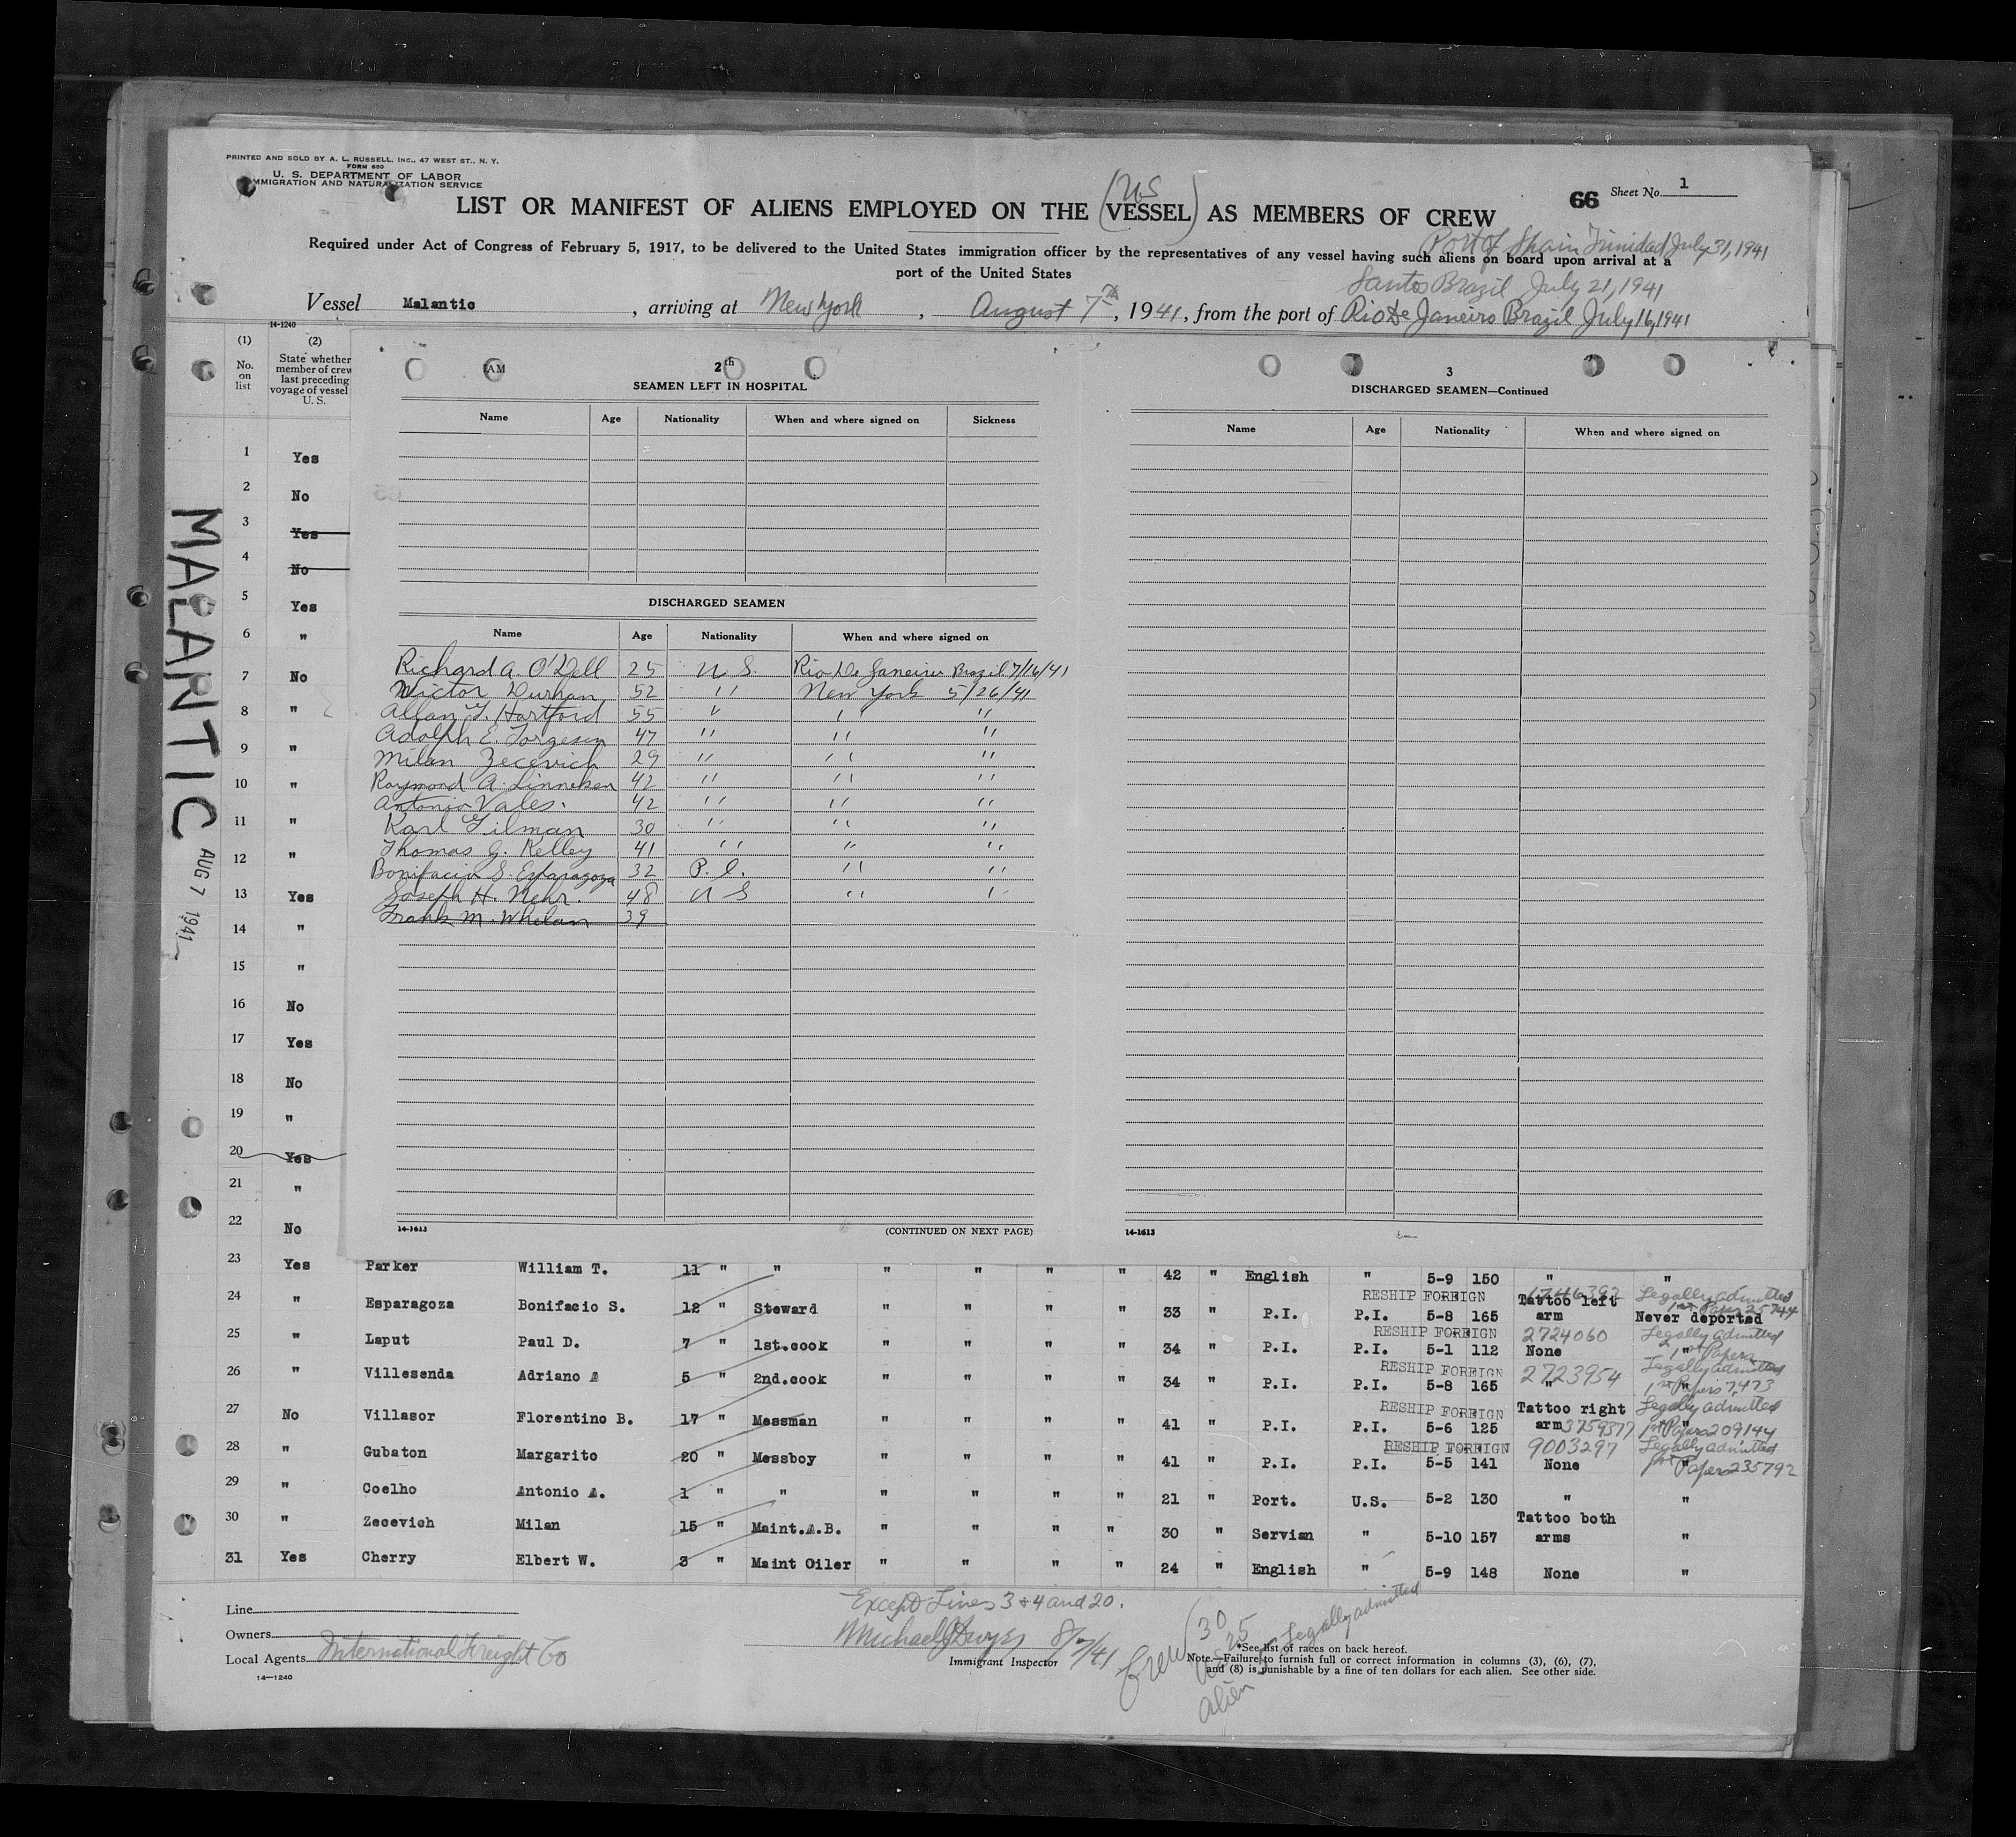 PRINTED AND SOLD BY A. L. RUSSELL, INC., 47 WEST ST., N. Y.
FORM 680
U. S. DEPARTMENT OF LABOR
IMMIGRATION AND NATURALIZATION SERVICE
66 Sheet No. 1
(US
LIST OR MANIFEST OF ALIENS EMPLOYED ON THE (VESSEL) AS MEMBERS OF CREW
Port of Spain Trinidad July 31, 1941
Required under Act of Congress of February 5, 1917, to be delivered to the United States immigration officer by the representatives of any vessel having such aliens on board upon arrival at a
port of the United States
Santos Brazil July 21, 1941
Vessel Malantic , arriving at New York , August 7th, 1941, from the port of Rio De Janeiro Brazil July 16, 1941
14-1240
(1) (2)
No. on list
State whether member of crew last preceding voyage of vessel U. S.
MALANTIC AUG 7 1941
1 Yes
2 No
3 Yes
4 No
5 Yes
6 "
7 No
8 "
9 "
10 "
11 "
12 "
13 Yes
14 "
15 "
16 No
17 Yes
18 No
19 "
20 Yes
21 "
22 No
AM 2th
SEAMEN LEFT IN HOSPITAL
Name Age Nationality When and where signed on Sickness
DISCHARGED SEAMEN
Name Age Nationality When and where signed on
Richard A. O'Dell 25 U S. Rio De Janeiro Brazil 7/16/41
Victor Durhan 52 " New York 5/26/41
Allan T. Hartford 55 " " "
Adolph E. Torgesen 47 " " "
Milan Zecevich 29 " " "
Raymond A. Linneken 42 " " "
Antonio Vales. 42 " " "
Karl Tilman 30 " " "
Thomas G. Kelley 41 " " "
Bonifacio S. Esparagoza 32 P.I. " "
Joseph H. Nehr. 48 U S " "
Frank M. Whelan 39
14-1613 (CONTINUED ON NEXT PAGE)
3
DISCHARGED SEAMEN—Continued
Name Age Nationality When and where signed on
14-1613
23 Yes Parker William T. 11 " " " " " " 42 " English " 5-9 150 " "
RESHIP FOREIGN 1746392 Legally admitted
24 " Esparagoza Bonifacio S. 12 " Steward " " " " 33 " P.I. P.I. 5-8 165 Tattoo left arm 1st Paper 25744 Never deported
RESHIP FOREIGN 2724060 Legally admitted
25 " Laput Paul D. 7 " 1st.cook " " " " 34 " P.I. P.I. 5-1 112 None " 1st Papers
RESHIP FOREIGN 2723954 Legally admitted
26 " Villesenda Adriano A 5 " 2nd.cook " " " " 34 " P.I. P.I. 5-8 165 " " 1st Papers 7,473
RESHIP FOREIGN Tattoo right Legally admitted
27 No Villasor Florentino B. 17 " Messman " " " " 41 " P.I. P.I. 5-6 125 arm 3759377 " 1st Papers 209144
RESHIP FOREIGN 9003297 Legally admitted
28 " Gubaton Margarito 20 " Messboy " " " " 41 " P.I. P.I. 5-5 141 None " 1st Papers 235792
29 " Coelho Antonio A. 1 " " " " " " 21 " Port. U.S. 5-2 130 " "
30 " Zecevich Milan 15 " Maint.A.B. " " " " 30 " Servian " 5-10 157 Tattoo both arms "
31 Yes Cherry Elbert W. 3 " Maint Oiler " " " " 24 " English " 5-9 148 None "
Except Lines 3 & 4 and 20.
Line
Owners
Local Agents International Freight Co
14—1240
Michael J Dwyer 8/7/41
Immigrant Inspector
Crew 30
US 25
Alien 5 Legally admitted
*See list of races on back hereof.
Note.—Failure to furnish full or correct information in columns (3), (6), (7),
and (8) is punishable by a fine of ten dollars for each alien. See other side.